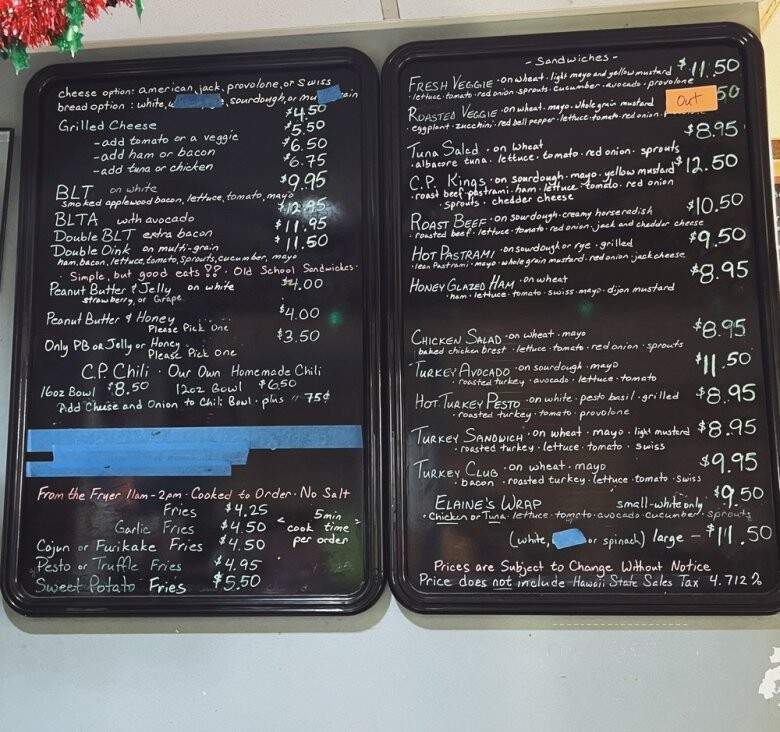 cheese option: american, jack, provolone, or Swiss
bread option: white, sourdough, or ain
Grilled Cheese $4.50
-add tomato or a veggie $5.50
-add ham or bacon $6.50
-add tuna or chicken $6.75
BLT on white $9.95
smoked applewood bacon, lettuce, tomato, mayo
BLTA with avocado $12.95
Double BLT extra bacon $11.95
Double Oink on multi-grain $11.50
ham, bacon, lettuce, tomato, sprouts, cucumber, mayo
· Simple, but good eats ?? · Old School Sandwiches ·
Peanut Butter & Jelly on white $4.00
strawberry, or Grape
Peanut Butter & Honey $4.00
Please Pick One
Only PB or Jelly or Honey $3.50
Please Pick One
C.P. Chili · Our Own Homemade Chili
16oz Bowl $8.50 12oz Bowl $6.50
Add Cheese and Onion to Chili Bowl · plus 75¢
From the Fryer 11am-2pm · Cooked to Order · No Salt
Fries $4.25
Garlic Fries $4.50
Cajun or Furikake Fries $4.50
Pesto or Truffle Fries $4.95
Sweet Potato Fries $5.50
5min
cook time
per order
- Sandwiches -
FRESH VEGGIE · on wheat · light mayo and yellow mustard $11.50
· lettuce · tomato · red onion · sprouts · cucumber · avocado · provolone
ROASTED VEGGIE · on wheat · mayo · whole grain mustard Out 50
· eggplant · zucchini · red bell pepper · lettuce · tomato · red onion ·
Tuna Salad · on wheat $8.95
· albacore tuna · lettuce · tomato · red onion · sprouts
C.P. Kings · on sourdough · mayo · yellow mustard $12.50
· roast beef · pastrami · ham · lettuce · tomato · red onion
· sprouts · chedder cheese
ROAST BEEF · on sourdough · creamy horseradish $10.50
· roasted beef · lettuce · tomato · red onion · jack and cheddar cheese
HOT PASTRAMI · on sourdough or rye · grilled $9.50
· lean Pastrami · mayo · whole grain mustard · red onion · jack cheese
HONEY GLAZED HAM · on wheat $8.95
· ham · lettuce · tomato · swiss · mayo · dijon mustard
CHICKEN SALAD · on wheat · mayo $8.95
· baked chicken brest · lettuce · tomato · red onion · sprouts
TURKEY AVOCADO · on sourdough · mayo $11.50
· roasted turkey · avocado · lettuce · tomato
HOT TURKEY PESTO · on white · pesto basil · grilled $8.95
· roasted turkey · tomato · provolone
TURKEY SANDWICH · on wheat · mayo · light mustard $8.95
· roasted turkey · lettuce · tomato · swiss
TURKEY CLUB · on wheat · mayo $9.95
· bacon · roasted turkey · lettuce · tomato · swiss
ELAINE'S WRAP small-white only $9.50
· Chicken or Tuna · lettuce · tomato · avocado · cucumber · sprouts
(white, or spinach) large - $11.50
Prices are Subject to Change Without Notice
Price does not include Hawaii State Sales Tax 4.712%